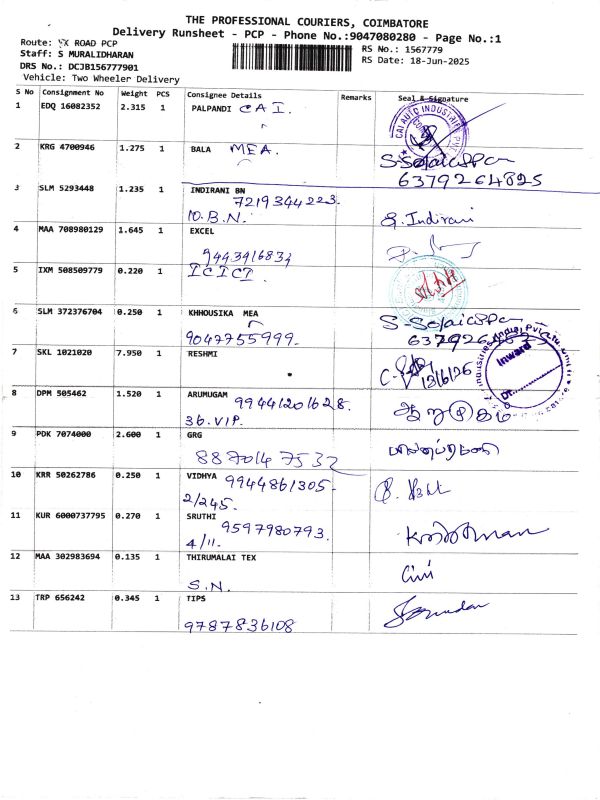 THE PROFESSIONAL COURIERS, COIMBATORE
Delivery Runsheet - PCP - Phone No.:9047080280 - Page No.:1
Route: VX ROAD PCP
Staff: S MURALIDHARAN
DRS No.: DCJB156777901
Vehicle: Two Wheeler Delivery
RS No.: 1567779
RS Date: 18-Jun-2025
S No Consignment No Weight PCS Consignee Details Remarks Seal & Signature
1 EDQ 16082352 2.315 1 PALPANDI C A I.
CAI AUTO INDUSTRIES PVT.
2 KRG 4700946 1.275 1 BALA MEA.
6379264825
3 SLM 5293448 1.235 1 INDIRANI BN
7219344223.
10.B.N. S. Indirani
4 MAA 708980129 1.645 1 EXCEL
5 IXM 508509779 0.220 1 ICICI
6 SLM 372376704 0.250 1 KHHOUSIKA MEA
9047755999.
7 SKL 1021020 7.950 1 RESHMI
Inward
8 DPM 505462 1.520 1 ARUMUGAM 9944201628.
36.VIP. ஆறுமுகம்
9 PDK 7074000 2.600 1 GRG
8870147532
10 KRR 50262786 0.250 1 VIDHYA 9944861305.
2/245.
11 KUR 6000737795 0.270 1 SRUTHI 9597980793.
4/11.
12 MAA 302983694 0.135 1 THIRUMALAI TEX
S.N.
13 TRP 656242 0.345 1 TIPS
9787836108